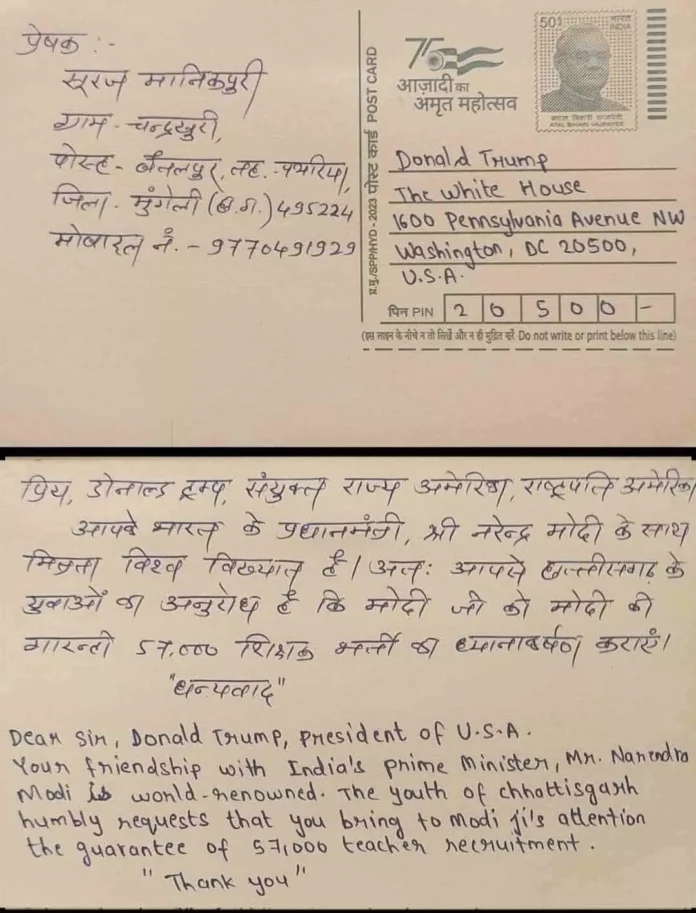 प्रेषक :-
सूरज मानिकपुरी
ग्राम - चन्द्रखुरी,
पोस्ट- बैतलपुर, तह. -पथरिया,
जिला - मुंगेली (छ.ग.) 495224
मोबाइल नं. - 9770491929
प्र.मु./SPP/HYD - 2023 पोस्ट कार्ड POST CARD
75
आज़ादी का
अमृत महोत्सव
50
भारत
INDIA
अटल बिहारी वाजपेयी
ATAL BIHARI VAJPAYEE
Donald Trump
The White House
1600 Pennsylvania Avenue NW
Washington, DC 20500,
U.S.A.
पिन PIN 2 0 5 0 0 -
(इस लाइन के नीचे न तो लिखें और न ही मुद्रित करें Do not write or print below this line)
प्रिय, डोनाल्ड ट्रम्प, संयुक्त राज्य अमेरिका, राष्ट्रपति अमेरिका
आपके भारत के प्रधानमंत्री, श्री नरेन्द्र मोदी के साथ
मित्रता विश्व विख्यात है। अतः आपसे छत्तीसगढ़ के
युवाओं का अनुरोध है कि मोदी जी को मोदी की
गारन्टी 57,000 शिक्षक भर्ती का ध्यानाकर्षण कराएं।
"धन्यवाद"
Dear Sir, Donald Trump, president of U.S.A.
Your friendship with India's prime Minister, Mr. Narendra
Modi is world-renowned. The youth of chhattisgarh
humbly requests that you bring to Modi ji's attention
the guarantee of 57,000 teacher recruitment.
"Thank you"